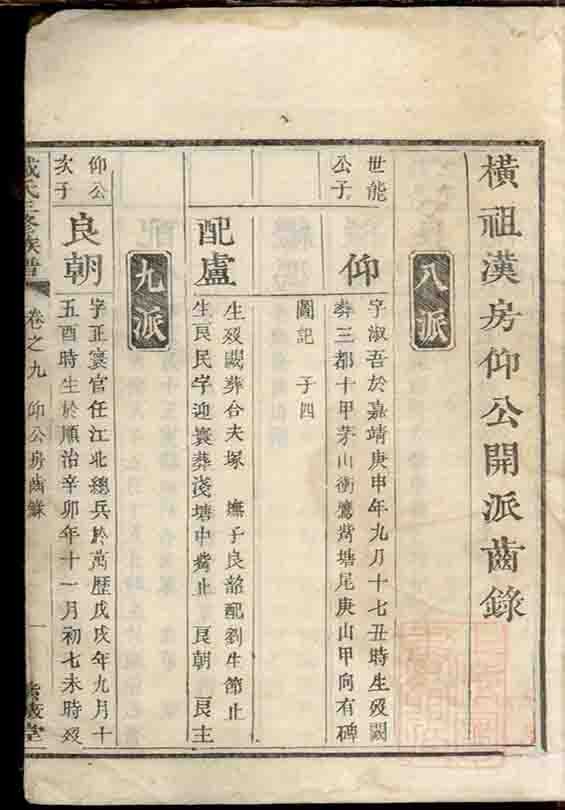 橫祖漢房仰公開派齒錄
八派
世能
公子
仰
字淑吾於嘉靖庚申年九月十七丑時生歿闕
葬三都十甲茅山衝鷹觜塘尾庚山甲向有碑
圖記 子四
配盧
生歿闕葬合夫塚 撫子良韶配劉生節止
生良民字迎寰葬淺塘中觜止 良朝 良主
九派
仰公
次子
良朝
字正寰官任江北總兵於萬歷戊戌年九月十
五酉時生於順治辛卯年十一月初七未時歿
氏三修族譜
卷之九 仰公房齒錄
一
堂